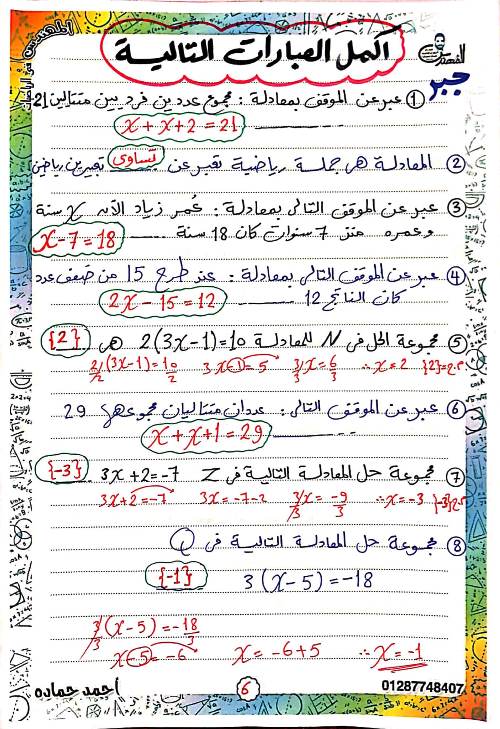 اكمل العبارات التالية
جبر
① عبر عن الموقف بمعادلة : مجموع عددين فرديين متتاليين 21
x + x + 2 = 21
② المعادلة هي جملة رياضية تعبر عن تساوى تعبيرين رياضيين
③ عبر عن الموقف التالى بمعادلة : عمر زياد الآن x سنة
وعمره منذ 7 سنوات كان 18 سنة x - 7 = 18
④ عبر عن الموقف التالى بمعادلة : عند طرح 15 من ضعف عدد
كان الناتج 12 2x - 15 = 12
⑤ مجموعة الحل في N للمعادلة 2(3x-1)=10 هى {2}
2/2 (3x-1) = 10/2 3x-1=5 3/3 x = 6/3 ∴ x = 2 {2}=م.ح
⑥ عبر عن الموقف التالى : عددان متتاليان مجموعهما 29
x + x + 1 = 29
⑦ مجموعة حل المعادلة التالية في Z 3x + 2 = -7 {-3}
3x+2=-7 3x = -7-2 3/3 x = -9/3 ∴ x = -3 {-3}=م.ح
⑧ مجموعة حل المعادلة التالية في Q
3 (x - 5) = -18
{-1}
3/3 (x - 5) = -18/3
x - 5 = -6 x = -6 + 5 ∴ x = -1
احمد حماده
6
01287748407